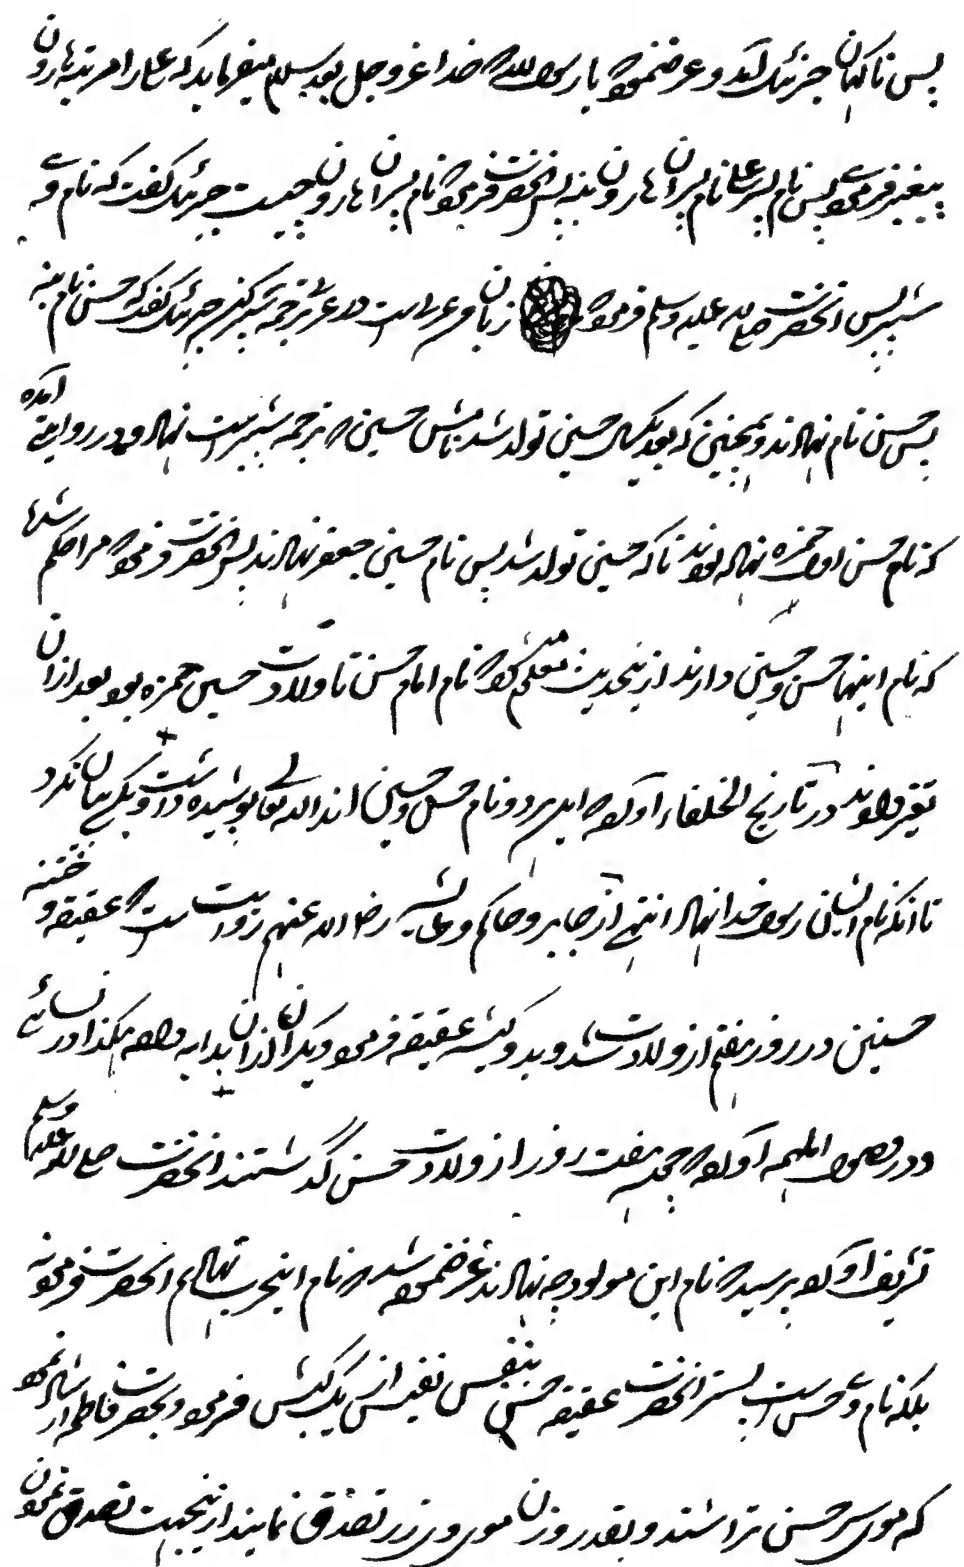 پس ناگهان جبرئیل آمد و عرض نمود یا رسول الله خدا عز و جل بعد سلام میفرماید که علی را مرتبه هارون
پیغمبر فرمودم پس نام پسر علی نام پسران هارون بنه پس آنحضرت فرمود نام پسران هارون چیست جبرئیل گفت که نام وے
شبیر پس آنحضرت صلی الله علیه وسلم فرمود زبان من عربی است در عربی ترجمه شبر کنیم جبرئیل گفت که حسن نام بنه
پس حسن نام نهادند و همچنین که بعد یکسال حسین تولد شد نامش حسین که ترجمه شبیر است نهاد و در روایتے آمده
که نام حسن اول حمزه نهاده بودند تا که حسین تولد شد پس نام حسین جعفر نهادند پس آنحضرت فرمود مرا حکم شد
که نام اینها حسن و حسین دارند ازینحدیث معلوم شود که نام امام حسن تا ولادت حسین حمزه بود بعد ازان
تغیر دادند در تاریخ الخلفاء آورده این هر دو نام حسن و حسین الله تعالی پوشیده داشت و بکسے بیان نکرد
تا آنکه نام ایشان رسول خدا نهاد انتهی از جابر و حاکم و عائشه رضی الله عنهم روایت است که عقیقه و ختنه
حسنین در روز هفتم از ولادت شد و بدو کبش عقیقه فرمود و یکران ازان بدایه داد هکذا در نسائے
و در وصول المهمه آورده چونکه هفت روز از ولادت حسن گذشتند آنحضرت صلی الله علیه وسلم
تشریف آورد پرسید که نام این مولود چه نهادند عرض نموده شد که نام این حرب نهادیم آنحضرت فرمود نه
بلکه نام وے حسن است پستر آنحضرت عقیقه حسن بنفس نفیس از یک کبش فرمود و بحضرت فاطمه ارشاد نمود
که موی سر حسن تراشند و بقدر وزن موی وی زر تصدق نمایند ازینجهت تصدق نمودن